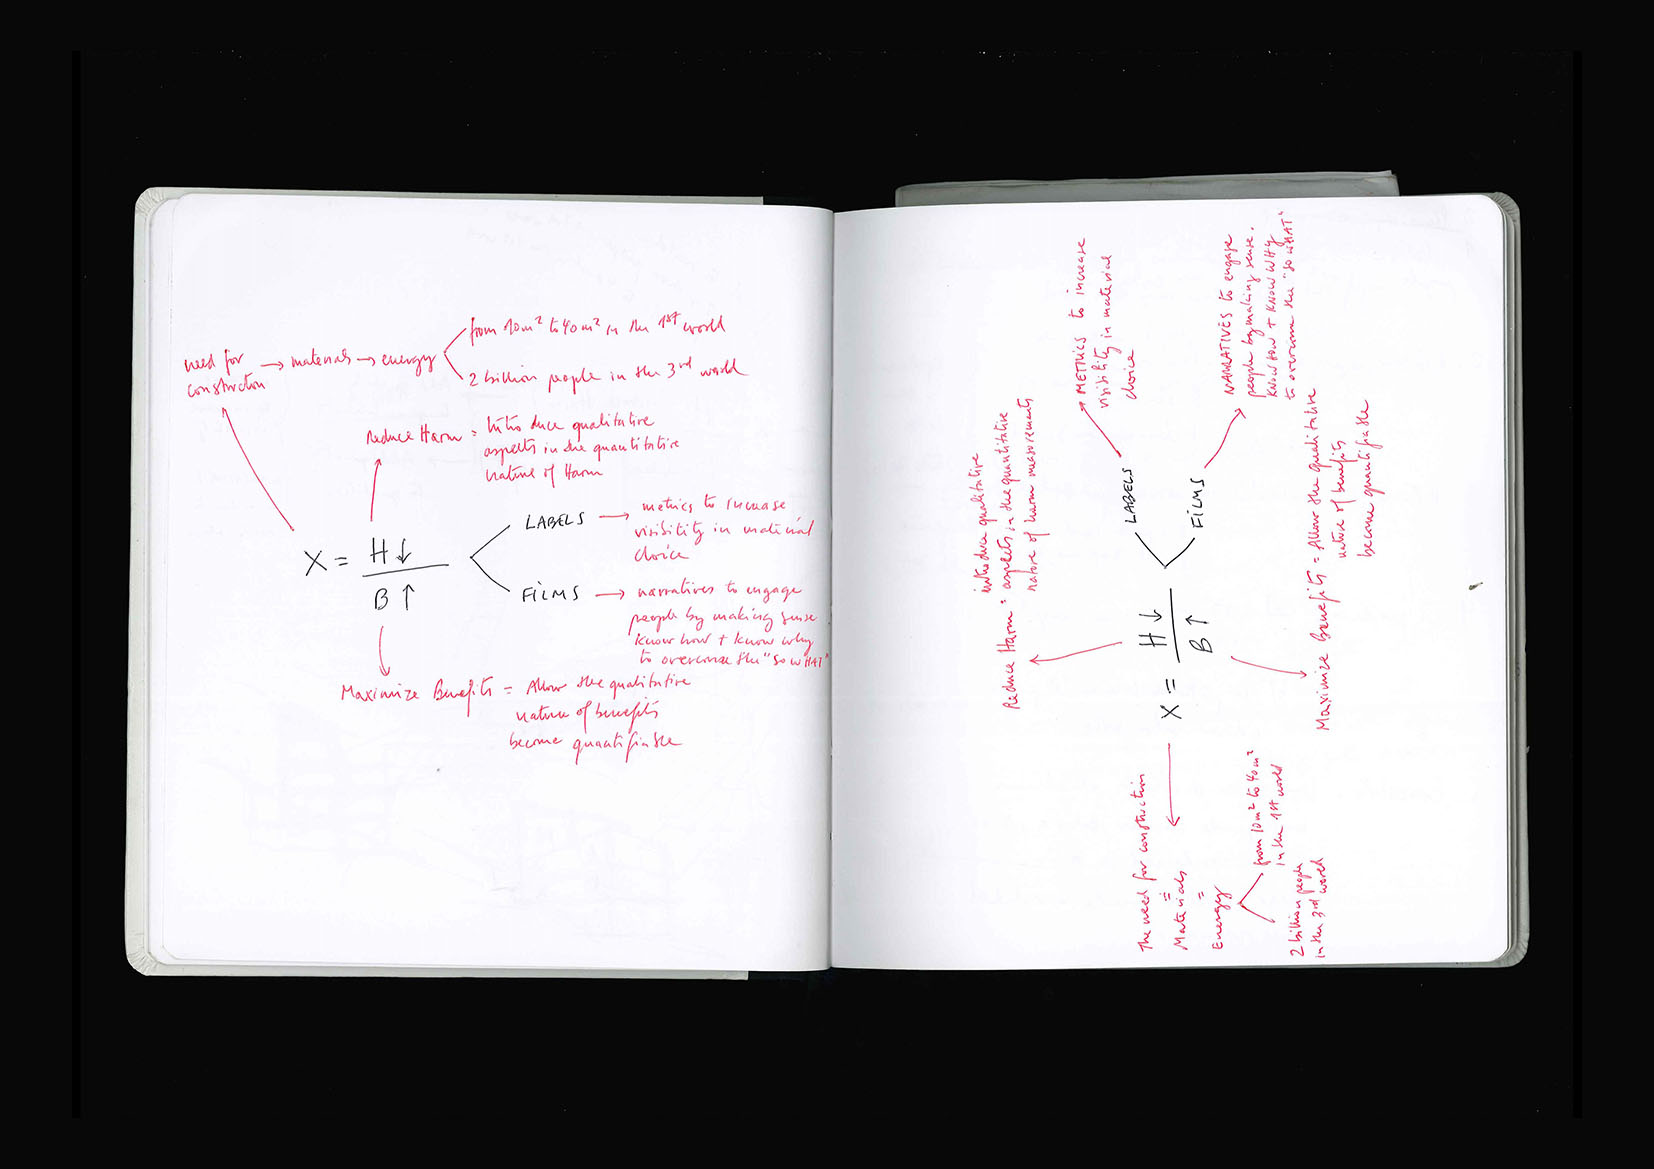 need for
construction
→ materials → energy
from 10m² to 40m² in the 1st world
2 billion people in the 3rd world
Reduce Harm = Introduce qualitative
aspects in the quantitative
nature of Harm
X = H↓
B↑
LABELS → metrics to increase
visibility in material
choice
FILMS → narratives to engage
people by making sense
know how + know why
to overcome the "SO WHAT"
Maximize Benefits = Allow the qualitative
nature of benefits
become quantifiable
introduce qualitative
Reduce Harm = aspects in the quantitative
nature of harm measurements
METRICS to increase
visibility in material
choice
LABELS
FILMS
NARRATIVES to engage
people by making sense.
KNOW HOW + KNOW WHY
to overcome the "SO WHAT"
X = H↓
B↑
Maximize Benefits = Allow the qualitative
nature of benefits
become quantifiable
The need for construction
=
Materials
=
Energy
from 10m² to 40m²
in the 1st world
2 billion people
in the 3rd world